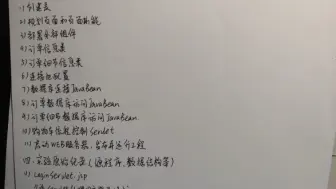 1) 创建表
2) 规划页面和页面功能
3) 部署全部组件
4) 订单信息表
5) 订单细节信息表
6) 连接池配置
7) 数据库连接JavaBean
8) 订单数据库访问JavaBean
9) 订单细节数据库访问JavaBean.
10) 购物车流程控制Servlet
11) 启动WEB服务器，发布并运行工程
四. 实验原始记录（源程序、数据结构等）
1) LoginServlet.jsp